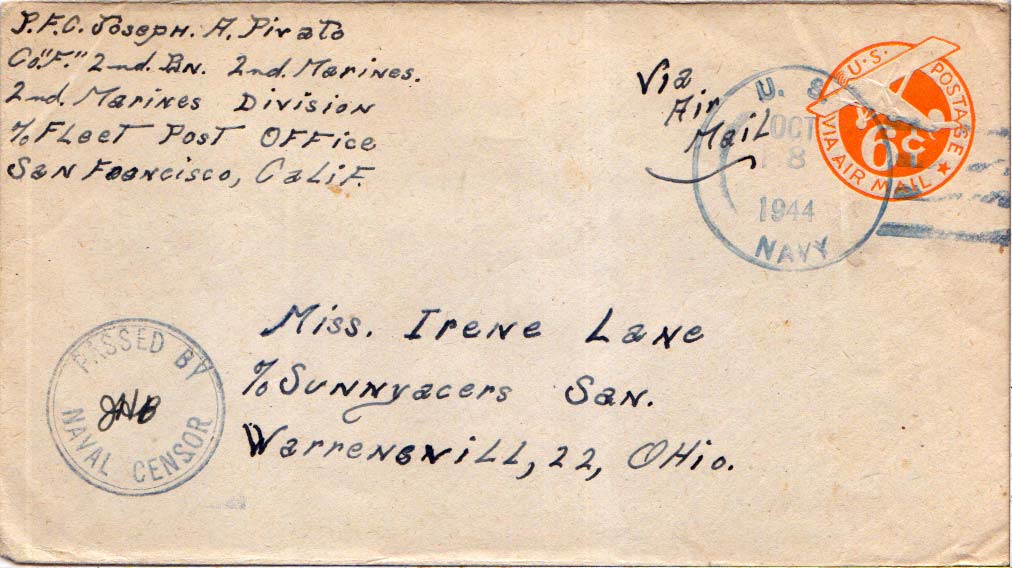 P.F.C. Joseph. A. Pirato
Co."F." 2nd. Bn. 2nd. Marines.
2nd. Marines Division
℅ Fleet Post Office
San Francisco, Calif.
Via
Air
Mail
U.S. POSTAGE
6c
VIA AIR MAIL
U. S.
OCT
8
1944
NAVY
Miss. Irene Lane
℅ Sunnyacers San.
Warrensvill, 22, Ohio.
PASSED BY
JHB
NAVAL CENSOR